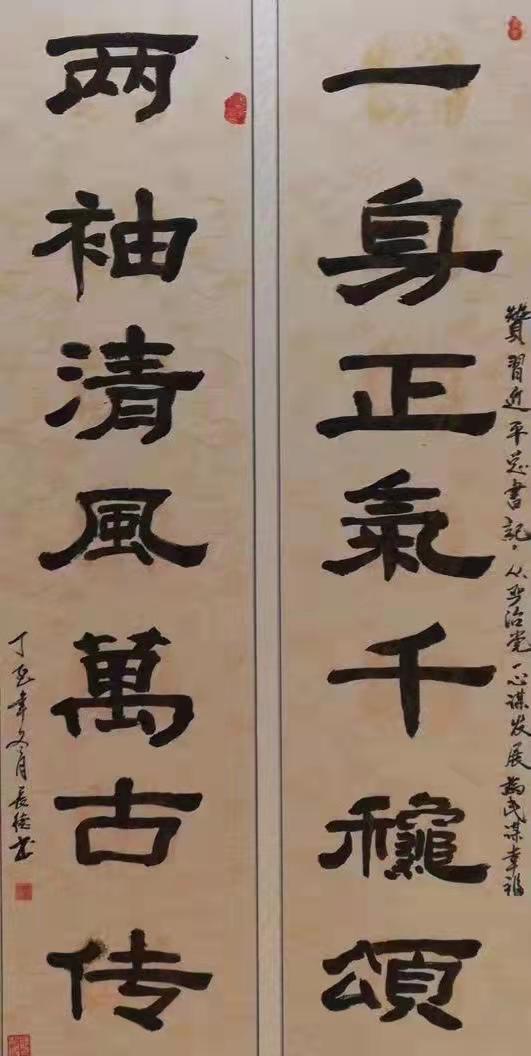 贊習近平总書記，从严治党一心谋发展為民谋幸福
一身正氣千龝頌
两袖清風萬古传
丁酉年冬月長德书